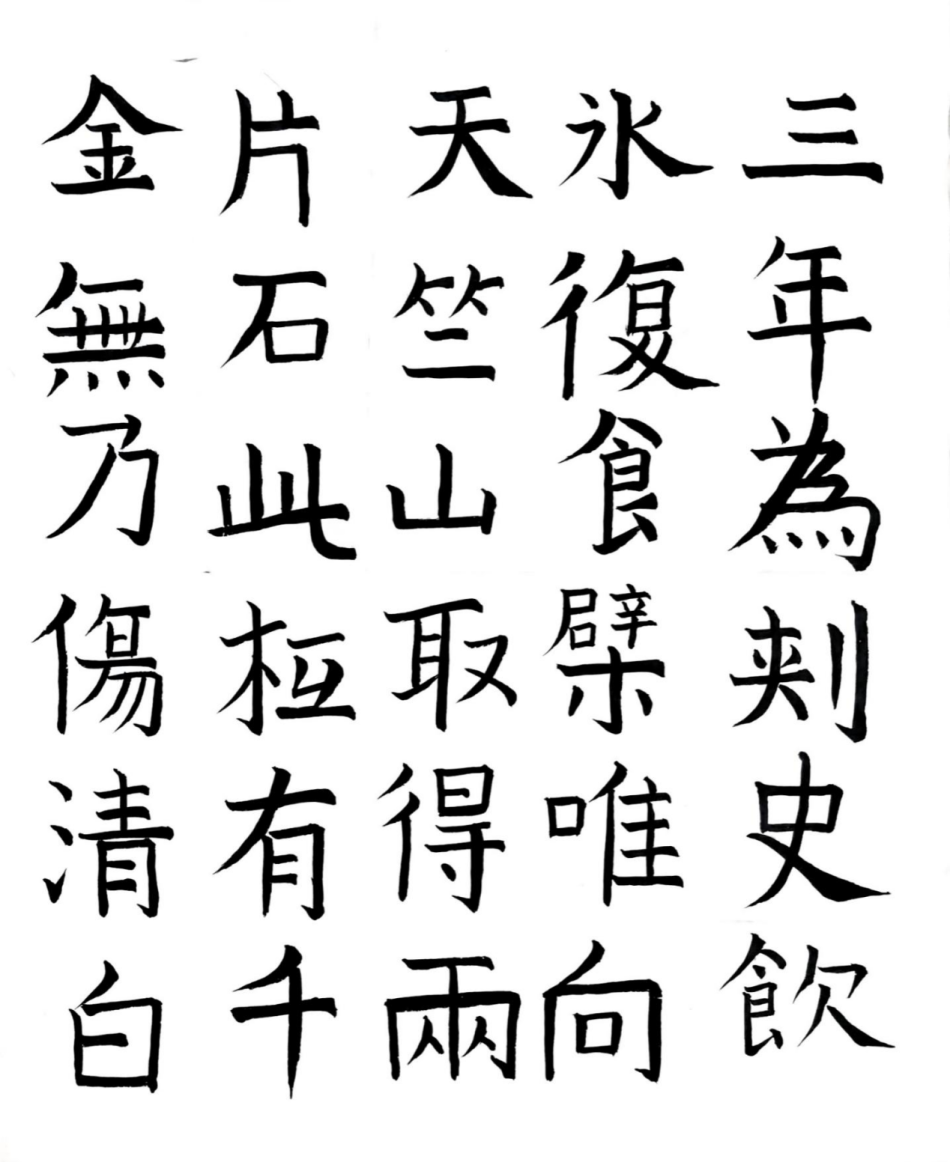 三年為刾史飲
氷復食檗唯向
天竺山取得兩
片石此枑有千
金無乃傷清白